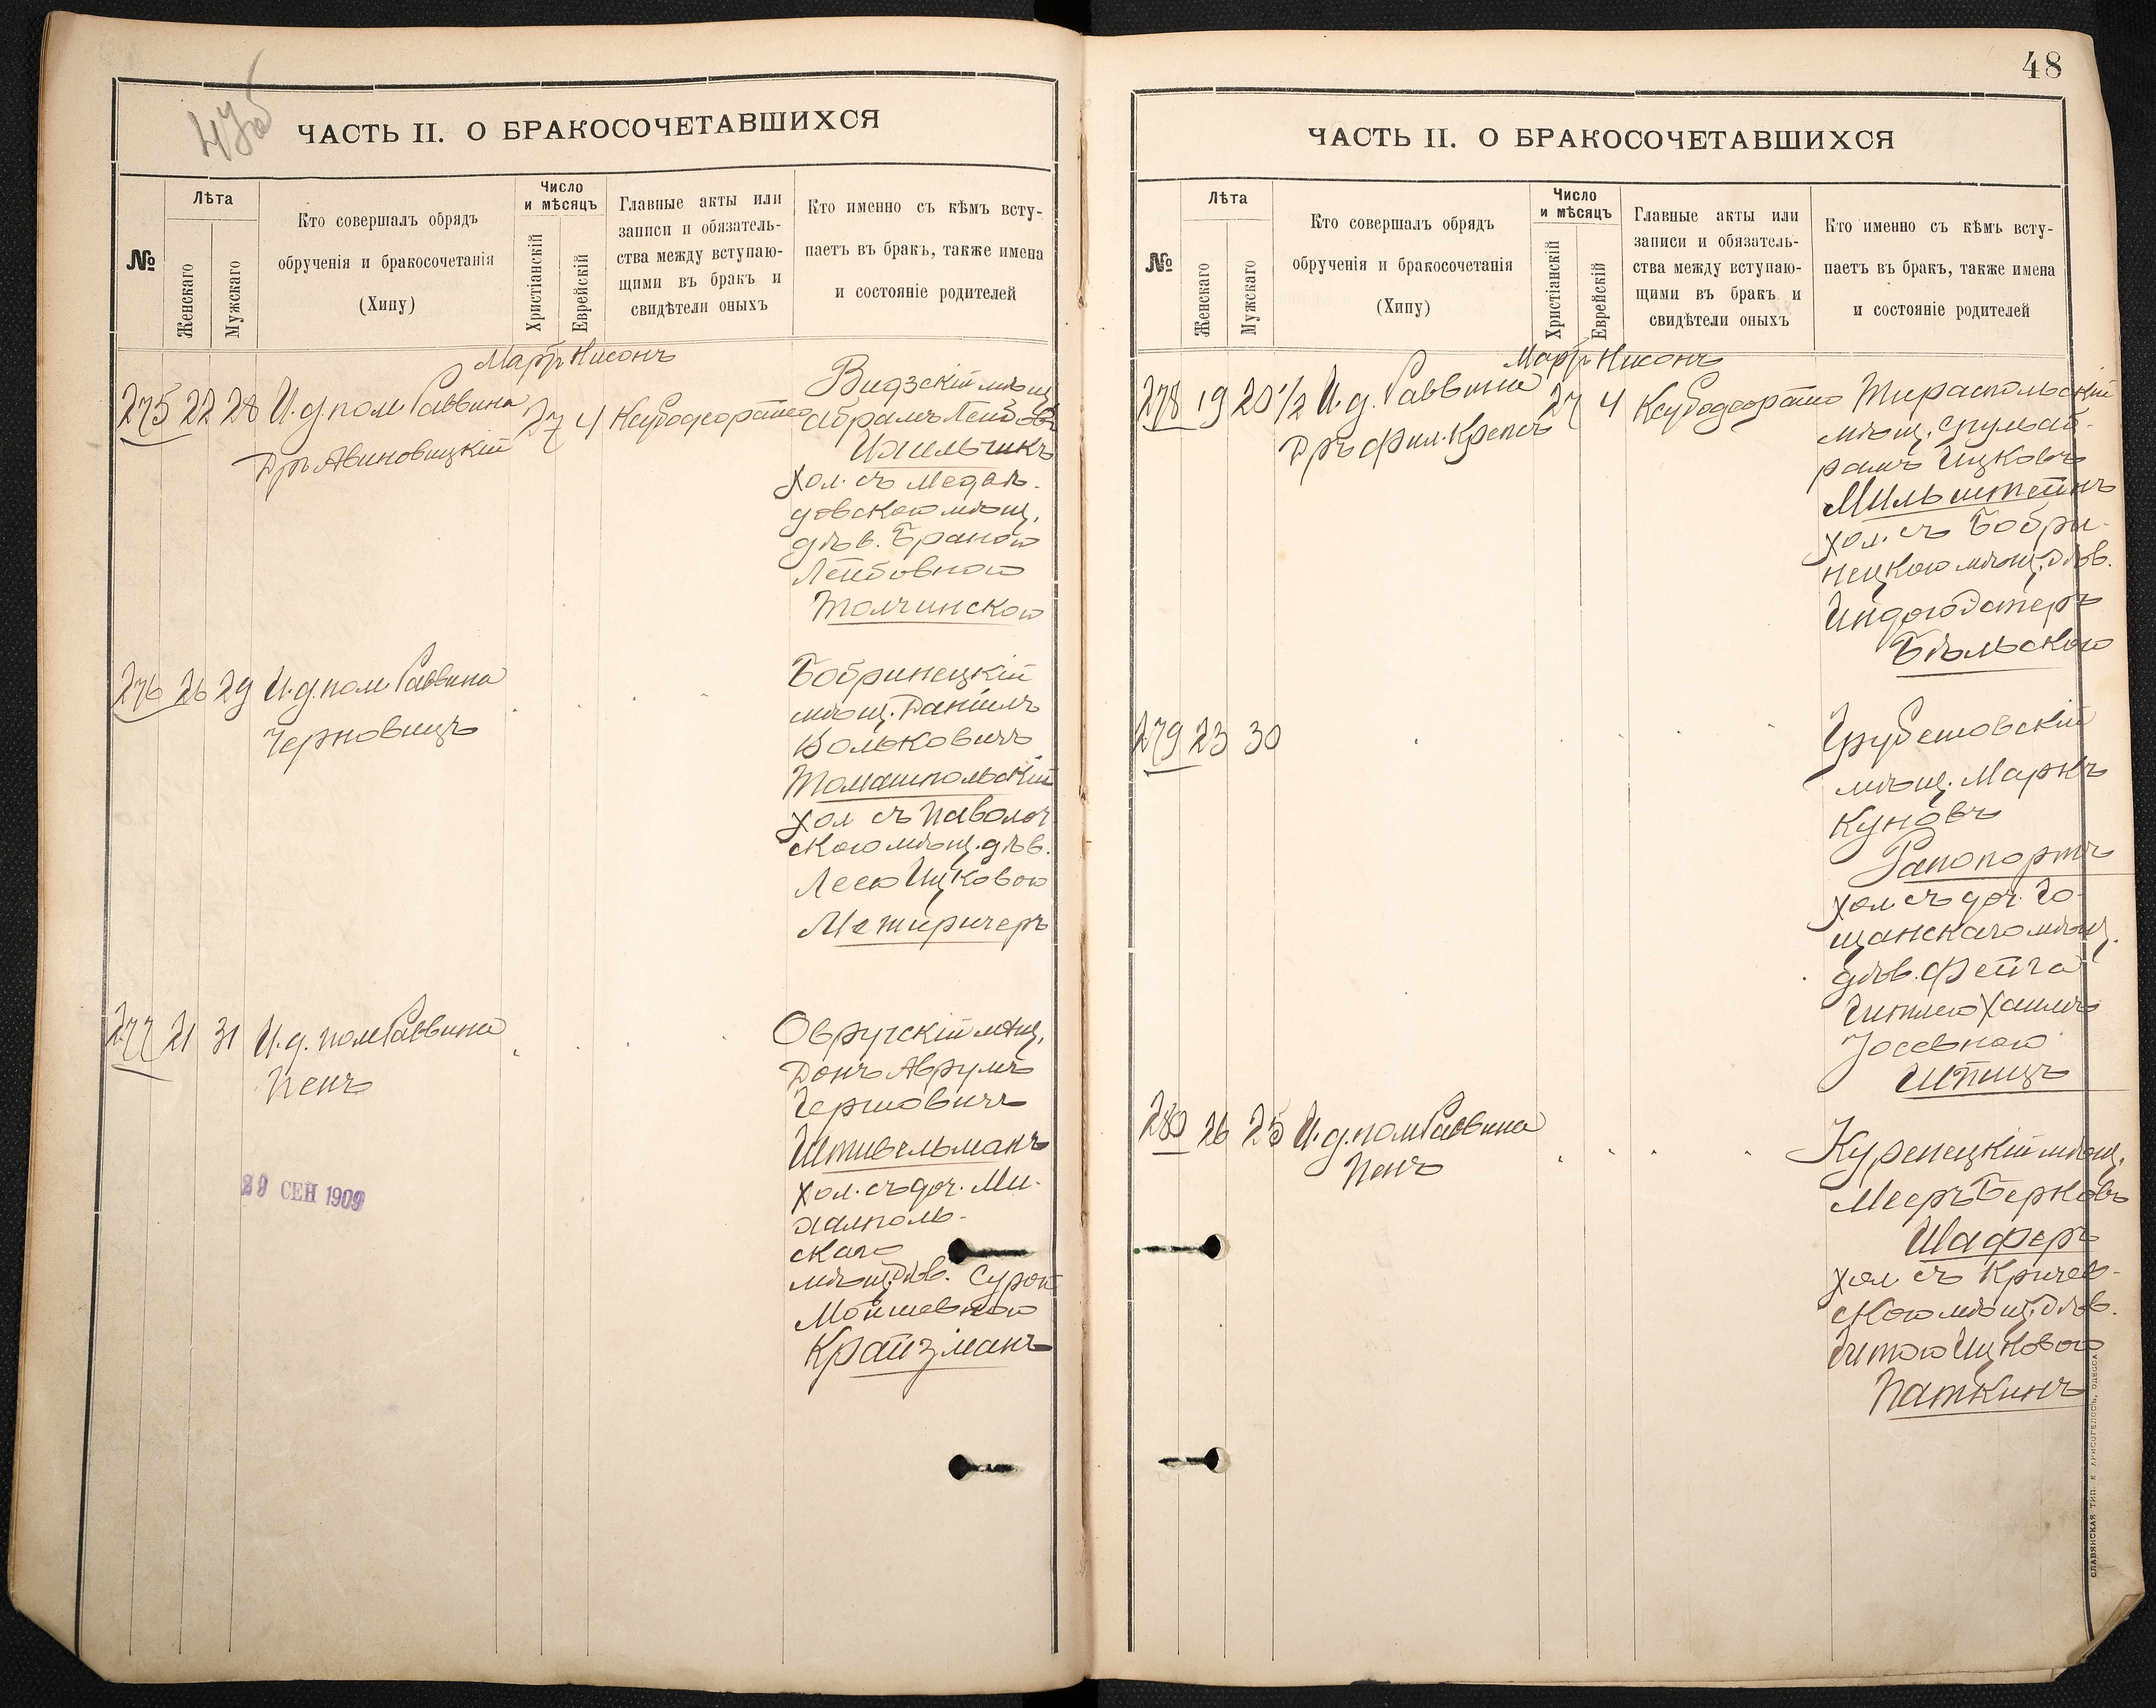 47б
ЧАСТЬ II. О БРАКОСОЧЕТАВШИХСЯ
№
Лѣта
Женскаго
Мужскаго
Кто совершалъ обрядъ
обрученія и бракосочетанія
(Хипу)
Число
и мѣсяцъ
Христіанскій
Еврейскій
Главные акты или
записи и обязатель-
ства между вступаю-
щими въ бракъ и
свидѣтели оныхъ
Кто именно съ кѣмъ всту-
паетъ въ бракъ, также имена
и состояніе родителей
Мартъ Нисонъ
275 22 28 И. д. пом. Раввина
Дръ Авиновицкій
27 4
Видзскій мѣщ.
Абрамъ Лейбовъ
Ихильчикъ
хол. съ Медве-
довскою мѣщ.
дѣв. Браною
Лейбовною
Толчинскою
276 26 29 И. д. пом Раввина
Черновицъ
Бобринецкій
мѣщ. Даніилъ
Вольковичъ
Томашпольскій
хол съ Паволоч
скою мѣщ. дѣв.
Леею Ицковою
Межиричеръ
277 21 31 И. д. пом Раввина
Пенъ
29 СЕН 1909
Овручскій мѣщ.
Донъ Аврумъ
Гершовичъ
Штивельманъ
хол. съ доч. Ми-
халполь-
скаго
мѣщ. дѣв. Сурой
Мойшевною
Крайзманъ
48
ЧАСТЬ II. О БРАКОСОЧЕТАВШИХСЯ
№
Лѣта
Женскаго
Мужскаго
Кто совершалъ обрядъ
обрученія и бракосочетанія
(Хипу)
Число
и мѣсяцъ
Христіанскій
Еврейскій
Главные акты или
записи и обязатель-
ства между вступаю-
щими въ бракъ и
свидѣтели оныхъ
Кто именно съ кѣмъ всту-
паетъ въ бракъ, также имена
и состояніе родителей
Мартъ Нисонъ
278 19 20 1/2 И. д. Раввина
Дръ Фил. Крепсъ
27 4
Тираспольскій
мѣщ. Сруль Аб-
рамъ Ицковъ
Мильштейнъ
хол. съ Бобри-
нецкою мѣщ. дѣв.
Бѣльскою
279 23 30
Грубешовскій
мѣщ. Маркъ
Куновъ
Рапопортъ
хол съ доч. Го-
щанскаго мѣщ.
дѣв. Фейга
Іосевною
Шпицъ
280 26 25 И. д. пом Раввина
Пенъ
Куренецкій мѣщ.
Мееръ Берковъ
Шаферъ
хол съ Кричев-
скою мѣщ. дѣв.
Гитою Ицковою
Паткинъ
СЛАВЯНСКАЯ ТИП. Е. ХРИСОГЕЛОСЪ, ОДЕССА